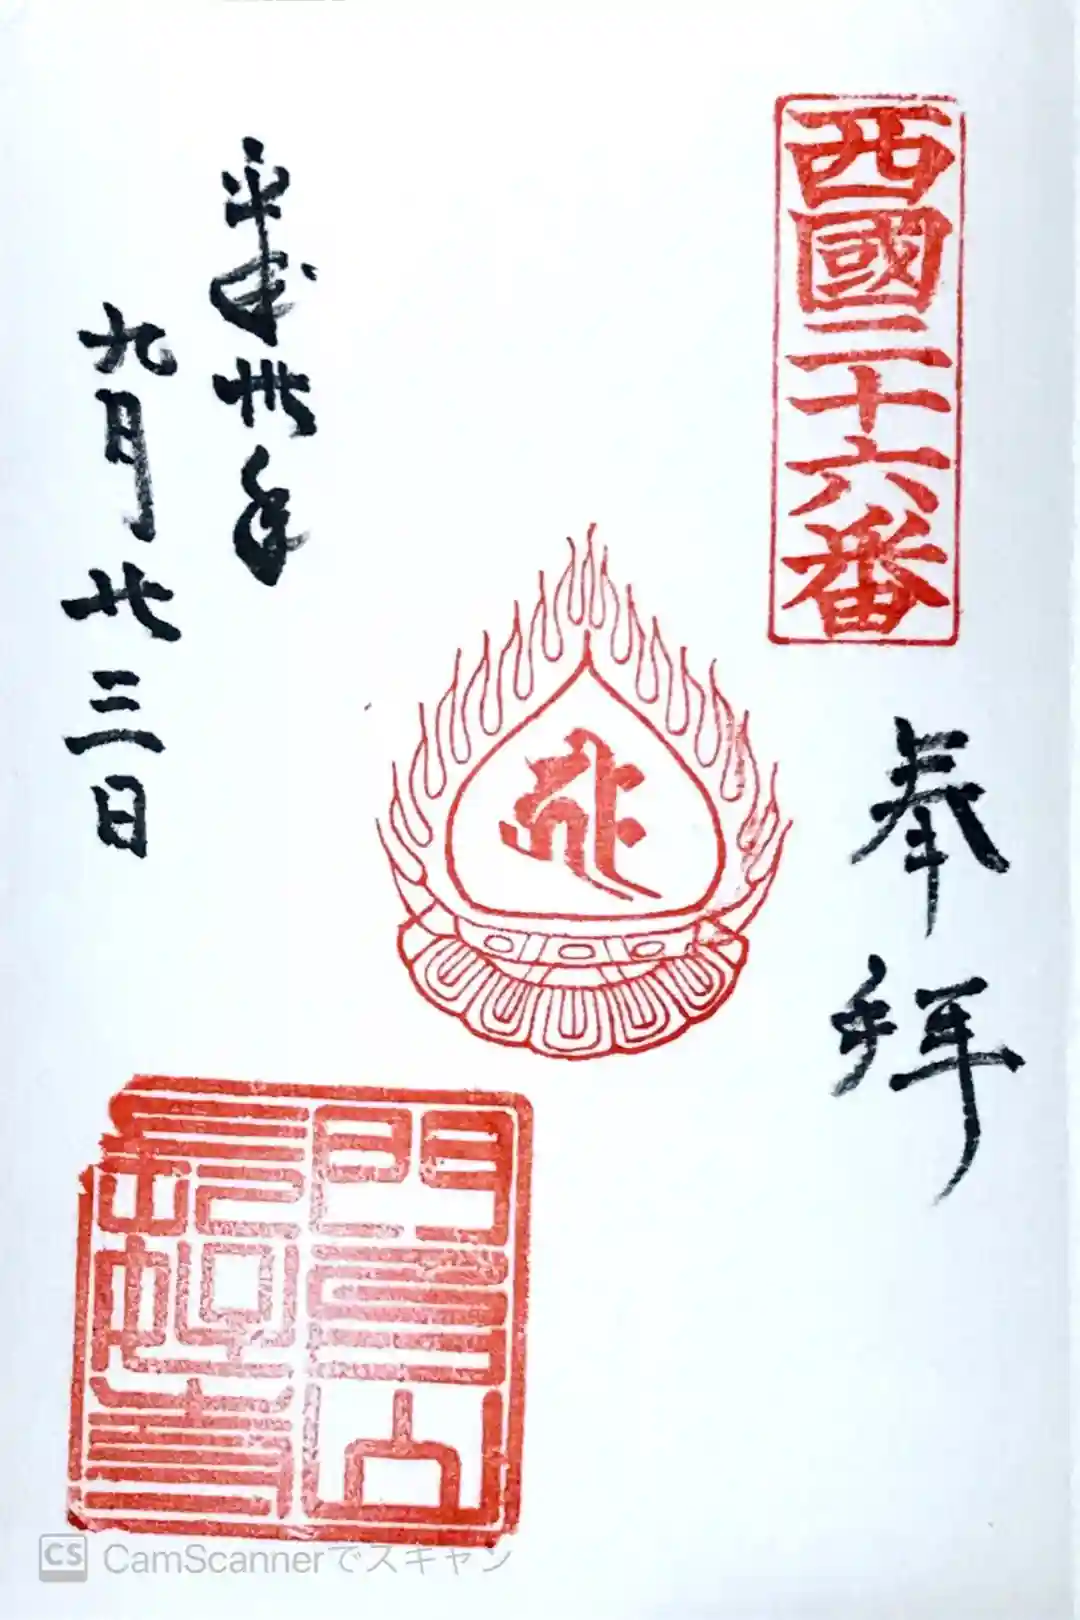 西國二十六番
奉拝
平成卅年
九月廿三日
CS CamScannerでスキャン